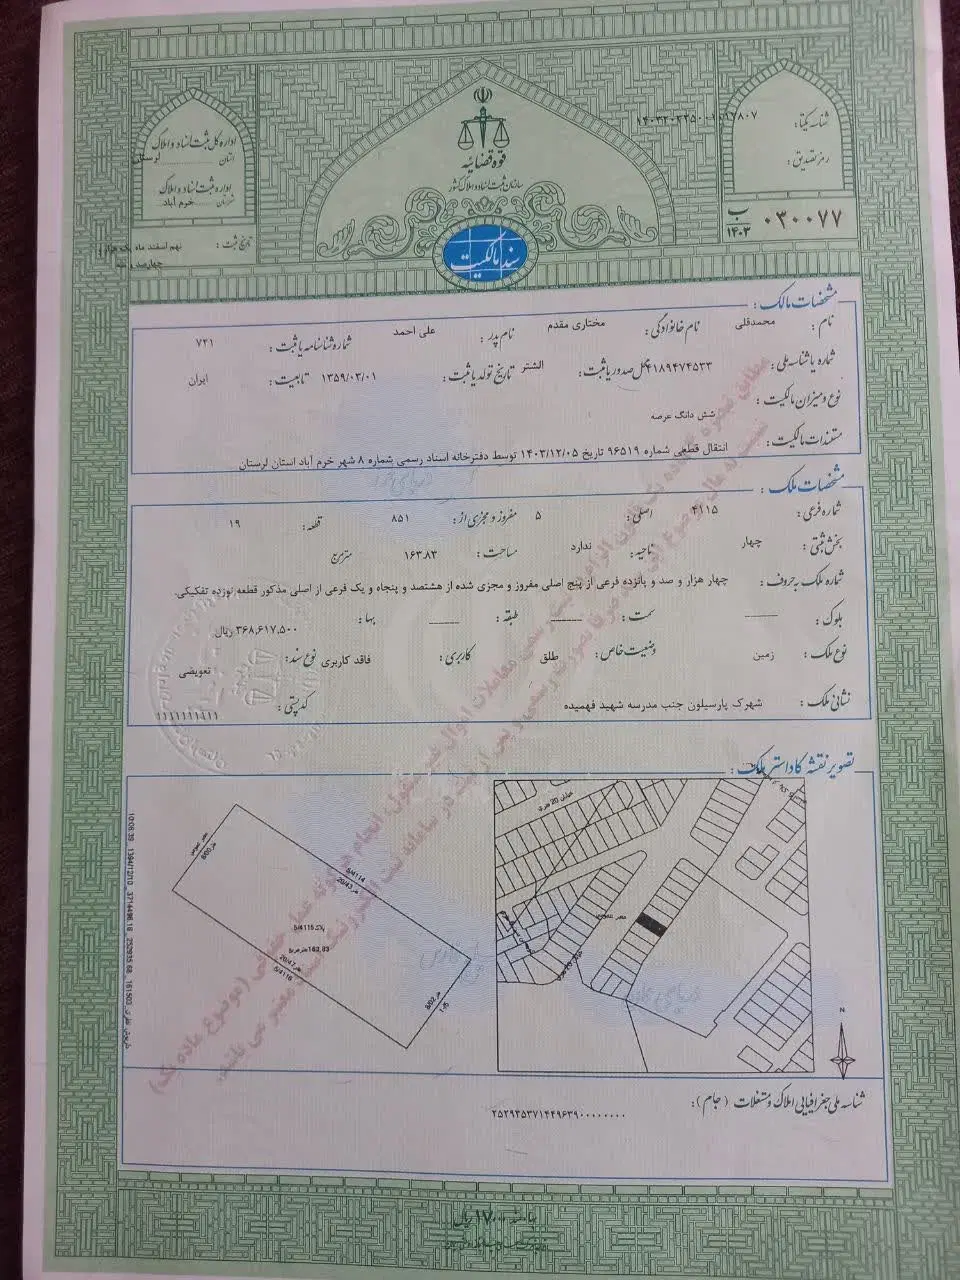 قوه قضائیه
سازمان ثبت اسناد و املاک کشور
سند مالکیت
اداره کل ثبت اسناد و املاک
استان لرستان
اداره ثبت اسناد و املاک
شهرستان خرم آباد
تاریخ ثبت : نهم اسفند ماه یکهزار و
چهارصد و سه
شناسه یکتا:
رمز تصدیق :
ب
۱۴۰۳
۰۳۰۰۷۷
مشخصات مالک :
نام : محمدقلی نام خانوادگی : مختاری مقدم نام پدر : علی احمد شماره شناسنامه یا ثبت : ۷۳۱
شماره یا شناسه ملی : ۴۱۸۹۴۷۴۵۳۳ محل صدور یا ثبت : الشتر تاریخ تولد یا ثبت : ۱۳۵۹/۰۳/۰۱ تابعیت : ایران
نوع و میزان مالکیت :
شش دانگ عرصه
مستندات مالکیت :
انتقال قطعی شماره ۹۶۵۱۹ تاریخ ۱۴۰۳/۱۲/۰۵ توسط دفترخانه اسناد رسمی شماره ۸ شهر خرم آباد استان لرستان
مشخصات ملک :
شماره فرعی : ۴۱۱۵ اصلی : ۵ مفروز و مجزی از : ۸۵۱ قطعه : ۱۹
بخش ثبتی : چهار ناحیه : ندارد مساحت : ۱۶۳.۸۳ مترمربع
شماره ملک به حروف : چهار هزار و صد و پانزده فرعی از پنج اصلی مفروز و مجزی شده از هشتصد و پنجاه و یک فرعی از اصلی مذکور قطعه نوزده تفکیکی.
بلوک : ــــــ سمت : ــــــ طبقه : ــــــ بها : ۳۶۸,۶۱۷,۵۰۰ ریال
نوع ملک : زمین وضعیت خاص : طلق کاربری : فاقد کاربری نوع سند : تعویضی
نشانی ملک : شهرک پارسیلون جنب مدرسه شهید فهمیده کد پستی : ۱۱۱۱۱۱۱۱۱۱
تصویر نقشه کاداستر ملک :
5/4114
20/43 متر
پلاک 5/4115
163.83 مترمربع
20/47 متر
5/4116
8/00 متر
8/02 متر
N
شناسه ملی جغرافیایی املاک و مستغلات (جام) :
۲۵۲۹۳۵۳۷۱۴۴۹۶۳۹۰۰۰۰۰۰۰۰